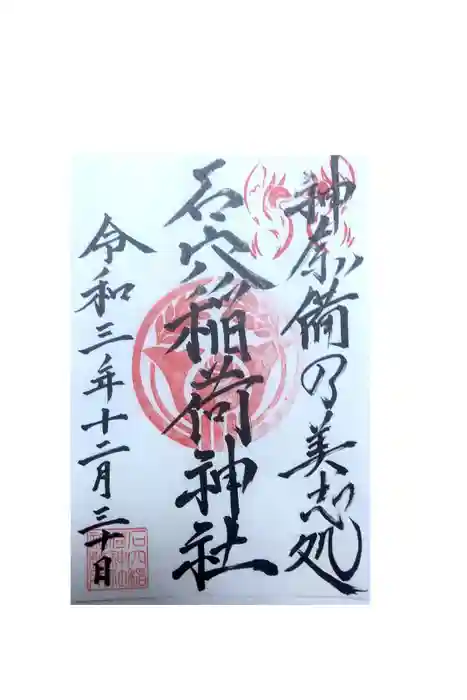 神奈備乃美志処
石穴稲荷神社
令和三年十二月三十日